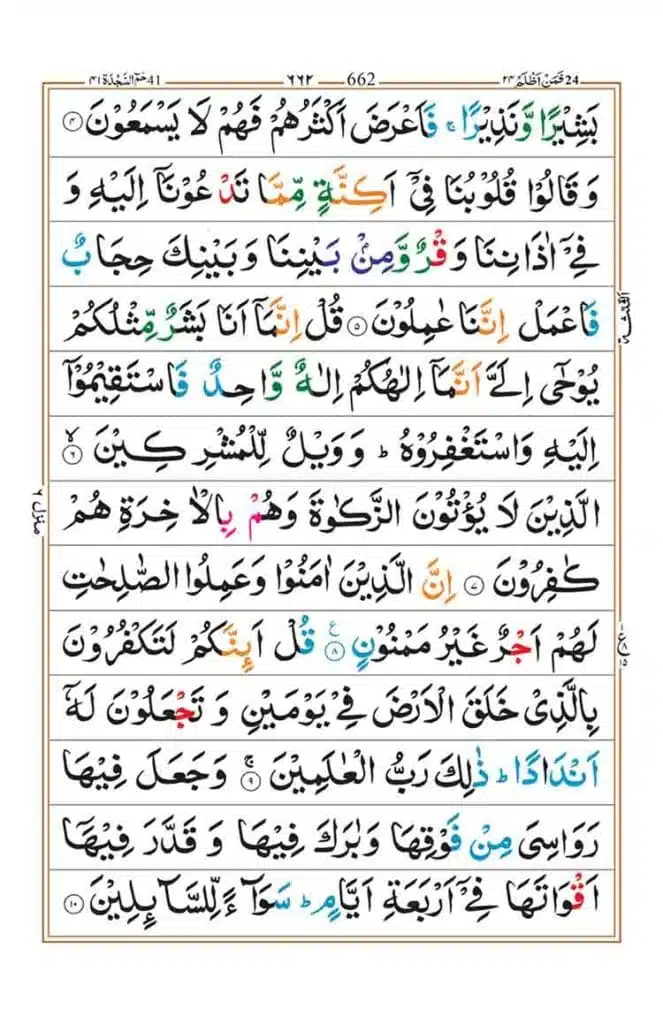 حٰمٓ السَّجْدَة ٤١ 41 ٦٦٢ 662 فَمَنْ اَظْلَمُ ٢٤ 24
بَشِيْرًا وَّنَذِيْرًا ۚ فَاَعْرَضَ اَكْثَرُهُمْ فَهُمْ لَا يَسْمَعُوْنَ ۴
وَ قَالُوْا قُلُوْبُنَا فِيْۤ اَكِنَّةٍ مِّمَّا تَدْعُوْنَاۤ اِلَيْهِ وَ
فِيْۤ اٰذَانِنَا وَقْرٌ وَّمِنْۢ بَيْنِنَا وَبَيْنِكَ حِجَابٌ
فَاعْمَلْ اِنَّنَا عٰمِلُوْنَ ۵ قُلْ اِنَّمَاۤ اَنَا بَشَرٌ مِّثْلُكُمْ
يُوْحٰۤى اِلَيَّ اَنَّمَاۤ اِلٰهُكُمْ اِلٰهٌ وَّاحِدٌ فَاسْتَقِيْمُوْۤا
اِلَيْهِ وَاسْتَغْفِرُوْهُ ؕ وَوَيْلٌ لِّلْمُشْرِكِيْنَ ۙ ۶
الَّذِيْنَ لَا يُؤْتُوْنَ الزَّكٰوةَ وَهُمْ بِالْاٰخِرَةِ هُمْ
كٰفِرُوْنَ ۷ اِنَّ الَّذِيْنَ اٰمَنُوْا وَعَمِلُوا الصّٰلِحٰتِ
لَهُمْ اَجْرٌ غَيْرُ مَمْنُوْنٍ ۸ ع قُلْ اَئِنَّكُمْ لَتَكْفُرُوْنَ
بِالَّذِيْ خَلَقَ الْاَرْضَ فِيْ يَوْمَيْنِ وَ تَجْعَلُوْنَ لَهٗۤ
اَنْدَادًا ؕ ذٰلِكَ رَبُّ الْعٰلَمِيْنَ ۚ ۹ وَجَعَلَ فِيْهَا
رَوَاسِيَ مِنْ فَوْقِهَا وَبٰرَكَ فِيْهَا وَ قَدَّرَ فِيْهَاۤ
اَقْوَاتَهَا فِيْۤ اَرْبَعَةِ اَيَّامٍ ؕ سَوَآءً لِّلسَّآئِلِيْنَ ۱۰
منزل ٦